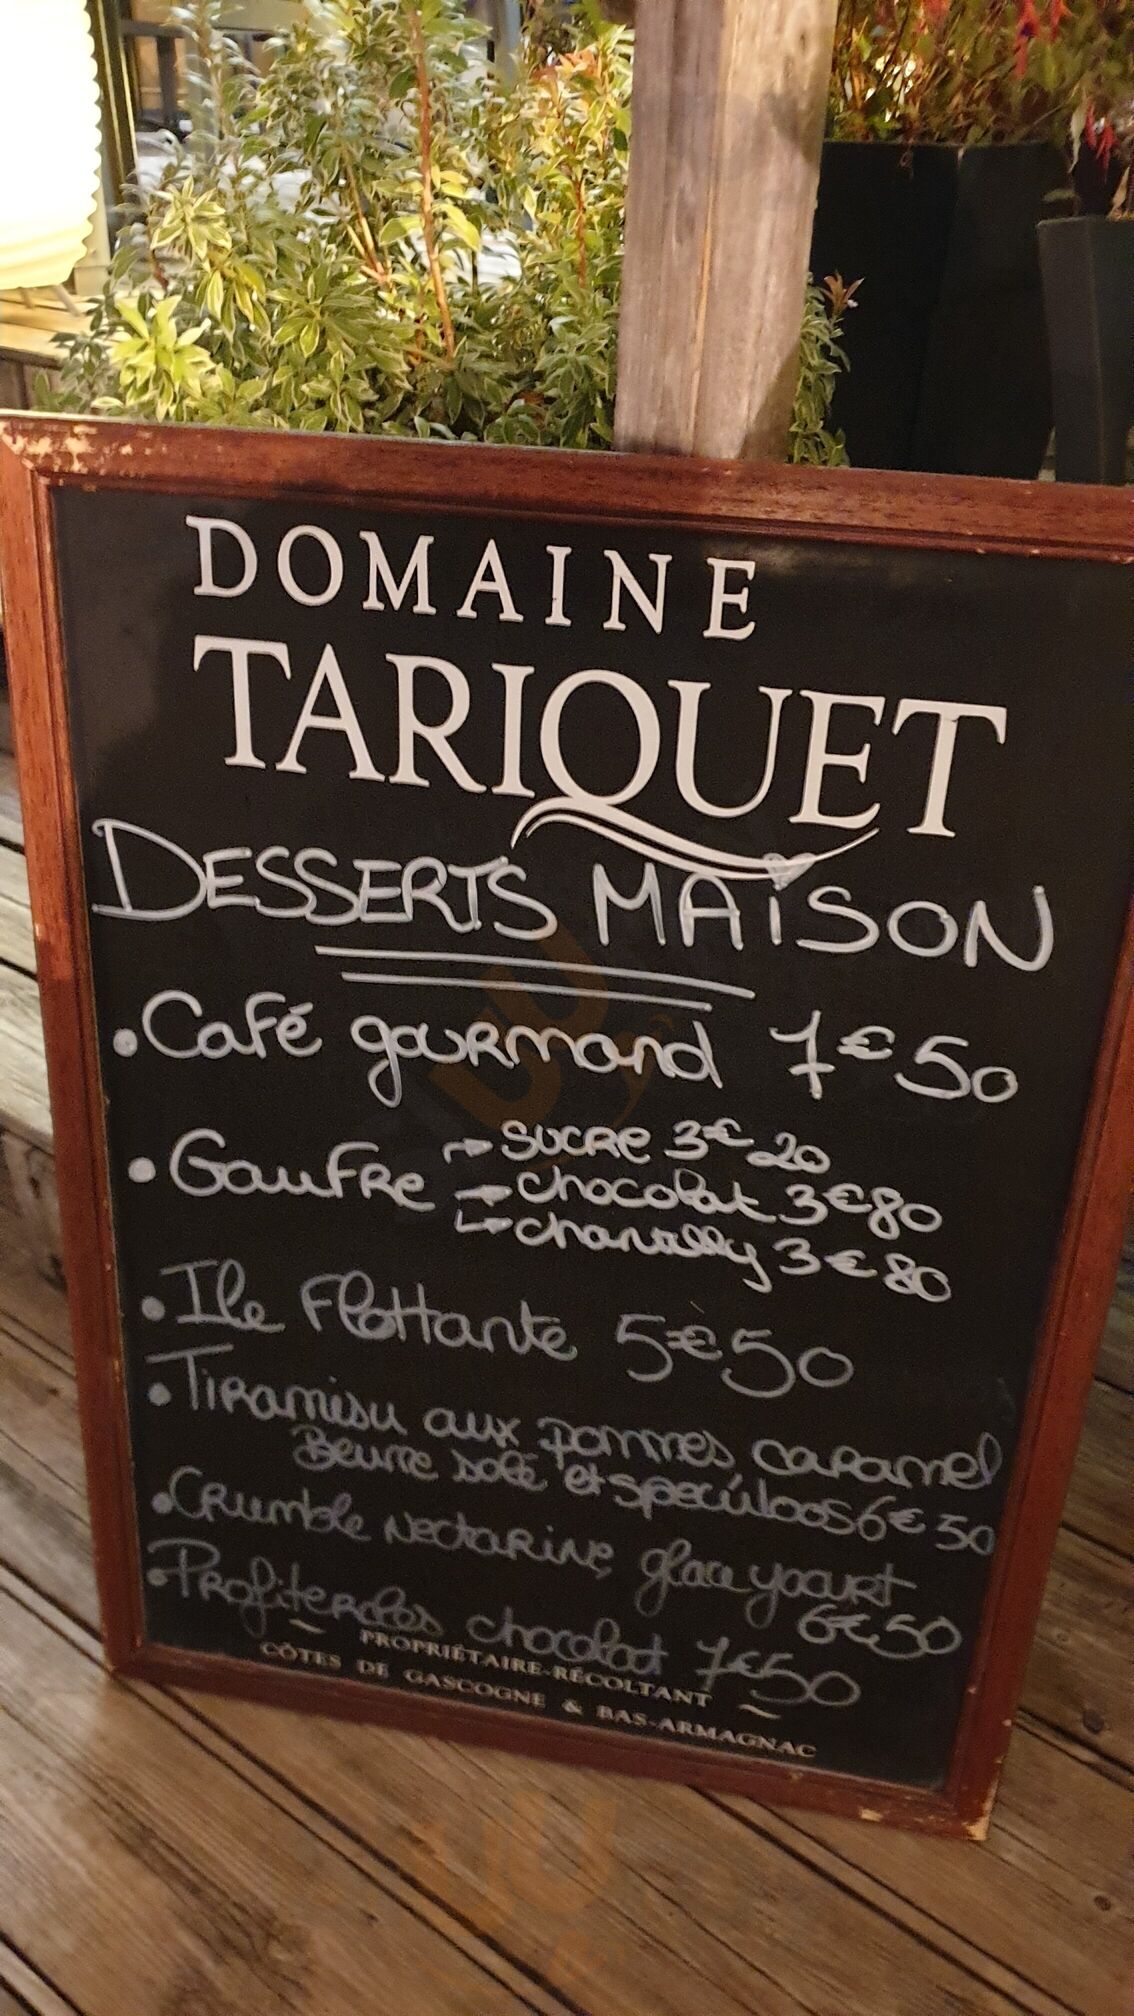 DOMAINE
TARIQUET
DESSERTS MAISON
• Café gourmand 7€50
• Gaufre → sucre 3€20
→ chocolat 3€80
→ chantilly 3€80
• Ile Flottante 5€50
• Tiramisu aux pommes caramel
Beurre salé et spéculoos 6€50
• Crumble Nectarine, glace yaourt
6€50
• Profiteroles chocolat 7€50
~ PROPRIÉTAIRE-RÉCOLTANT ~
CÔTES DE GASCOGNE & BAS-ARMAGNAC